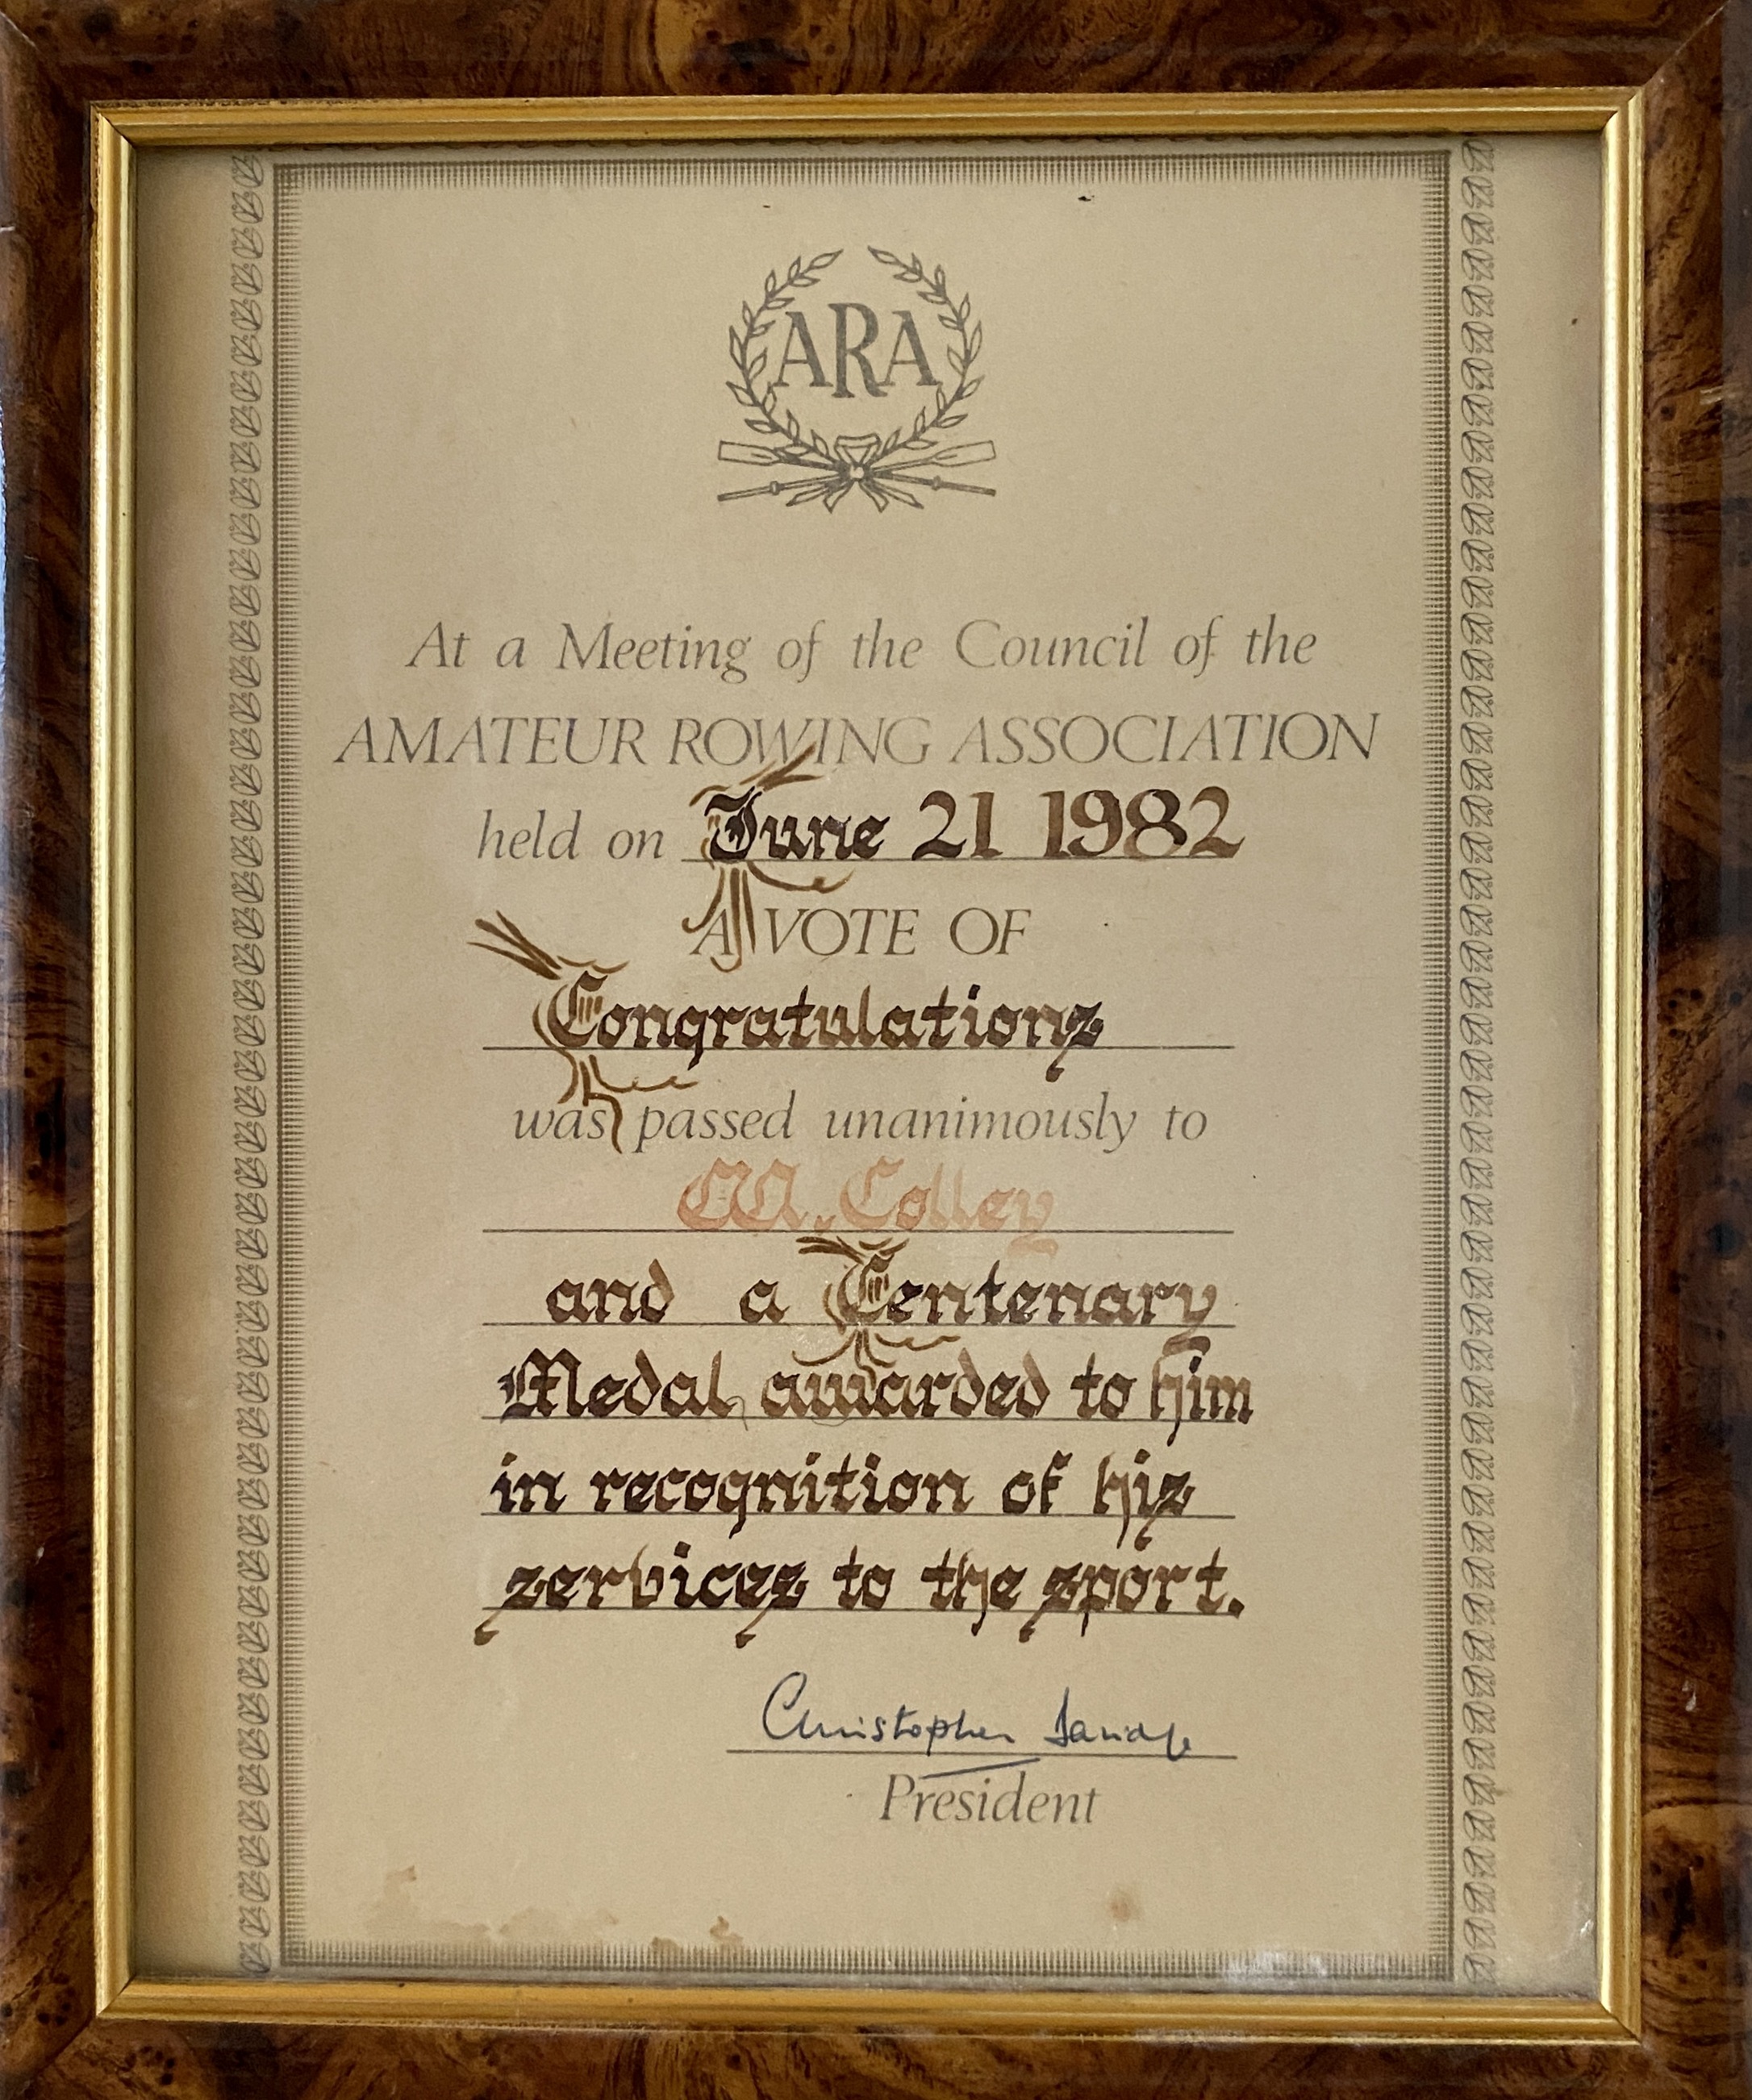 ARA
At a Meeting of the Council of the
AMATEUR ROWING ASSOCIATION
held on June 21 1982
A VOTE OF
Congratulations
was passed unanimously to
W. Colley
and a Centenary
Medal awarded to him
in recognition of his
services to the sport.
Christopher Davidge
President